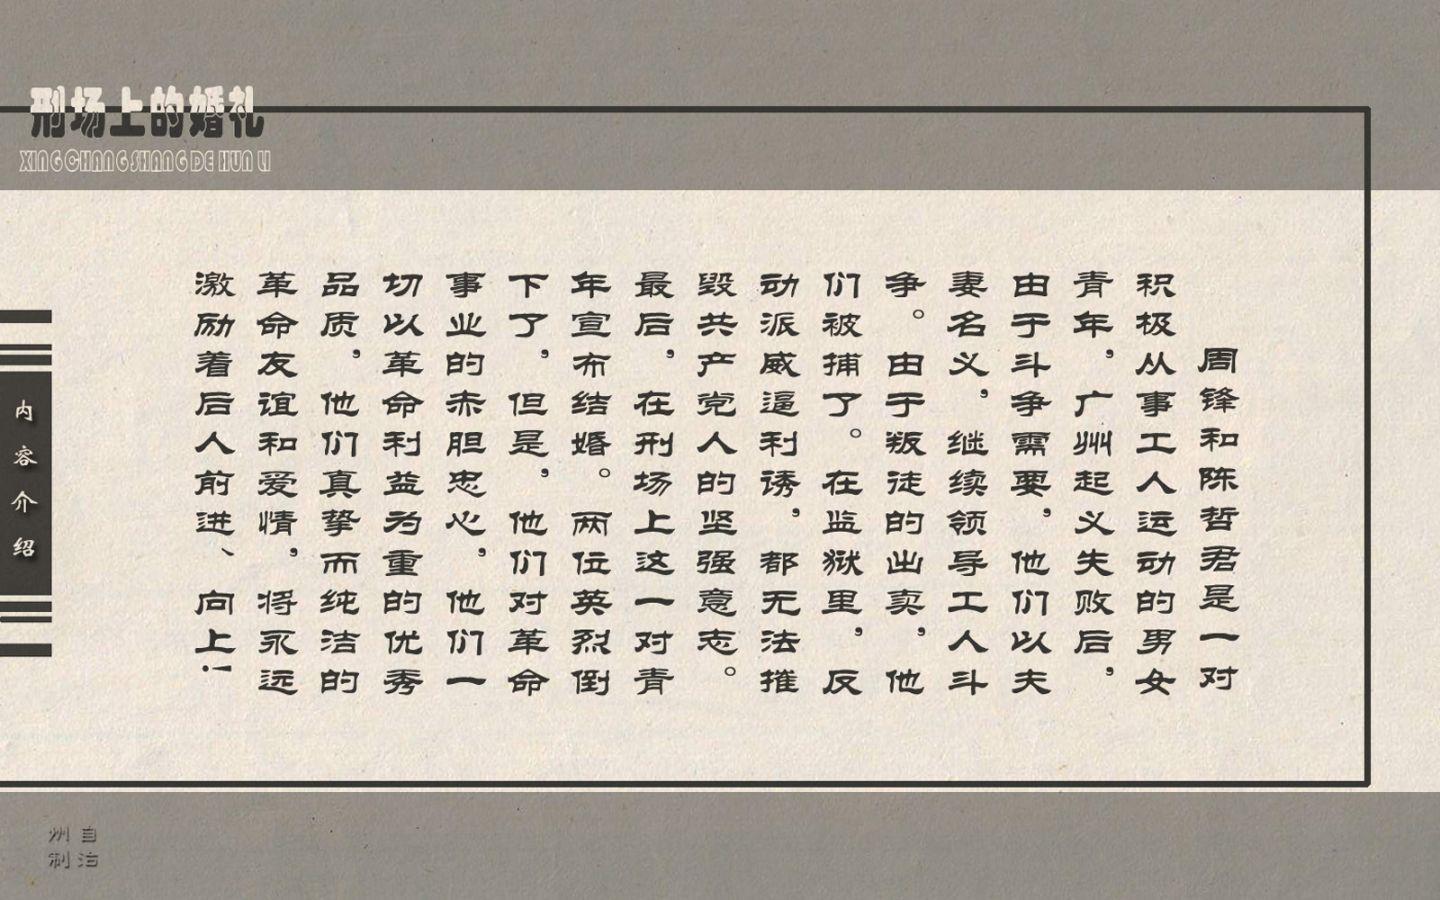 刑场上的婚礼
XING CHANG SHANG DE HUN LI
内容介绍
周锋和陈哲君是一对
积极从事工人运动的男女
青年，广州起义失败后，
由于斗争需要，他们以夫
妻名义，继续领导工人斗
争。由于叛徒的出卖，他
们被捕了。在监狱里，反
动派威逼利诱，都无法摧
毁共产党人的坚强意志。
最后，在刑场上这一对青
年宣布结婚。两位英烈倒
下了，但是，他们对革命
事业的赤胆忠心，他们一
切以革命利益为重的优秀
品质，他们真挚而纯洁的
革命友谊和爱情，将永远
激励着后人前进、向上！
自治
州制